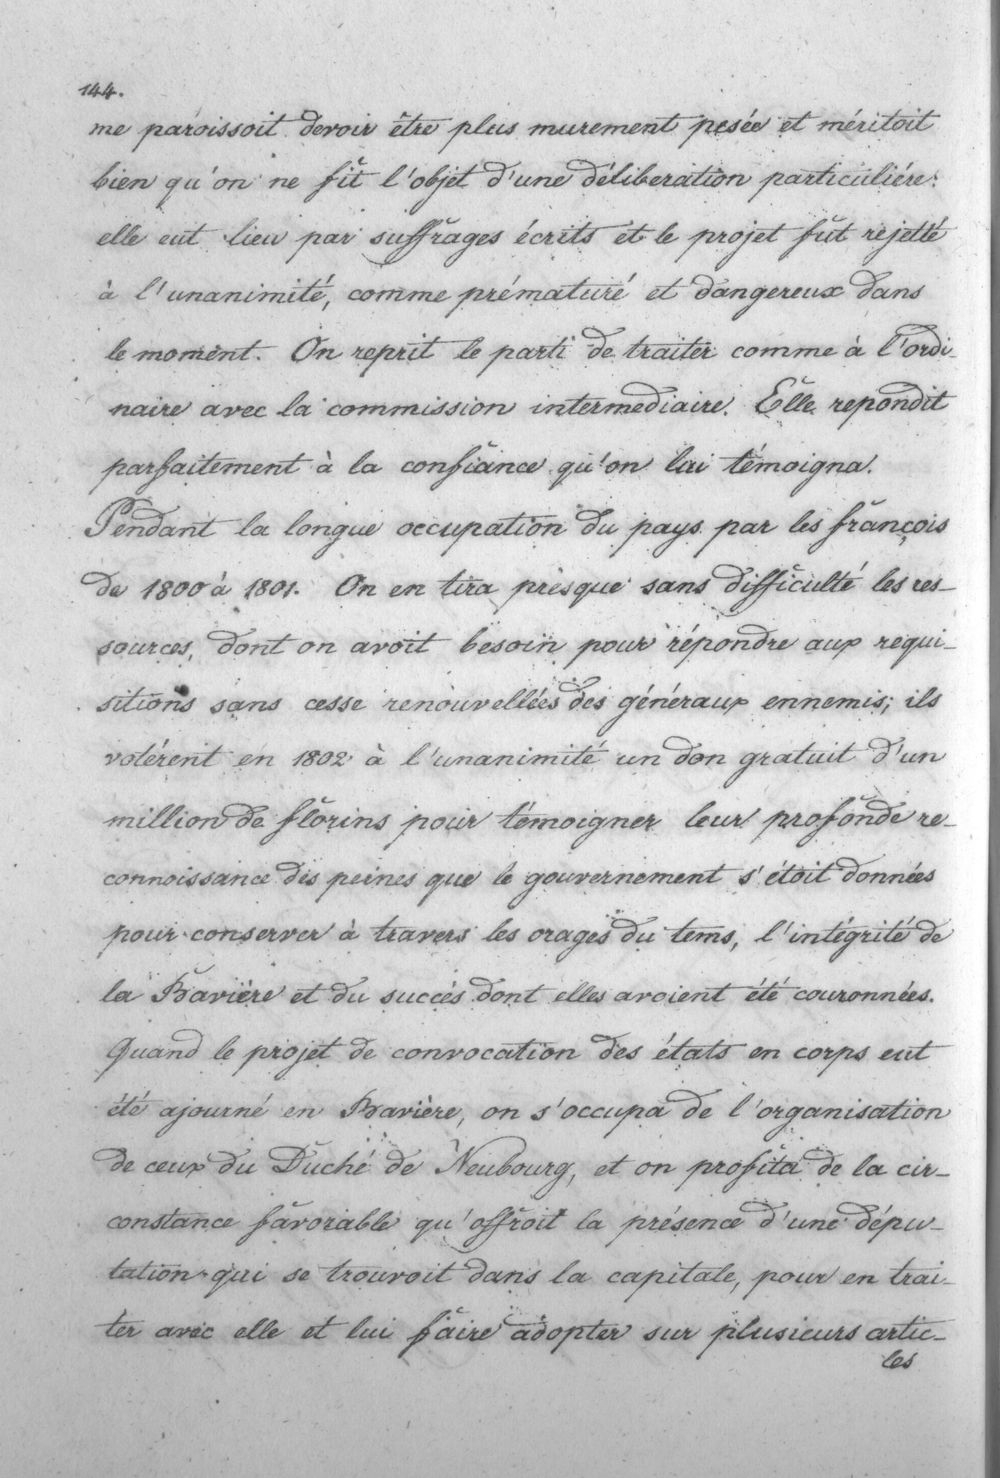 144.
me paroissoit devoir être plus murement pesée et méritoit
bien qu'on ne fît l'objet d'une déliberation particuliére:
elle eut lieu par suffrages écrits et le projet fut rejetté
à l'unanimité, comme prématuré et dangereux dans
le moment. On reprit le parti de traiter comme à l'ordi-
naire avec la commission intermediaire. Elle repondit
parfaitement à la confiance qu'on lui témoigna.
Pendant la longue occupation du pays par les françois
de 1800 à 1801. On en tira presque sans difficulté les res-
sources, dont on avoit besoin pour répondre aux requi-
sitions sans cesse renouvellées des généraux ennemis; ils
votérent en 1802 à l'unanimité un don gratuit d'un
million de florins pour témoigner leur profonde re-
connoissance des peines que le gouvernement s'étoit données
pour conserver à travers les orages du tems, l'intégrité de
la Bavière et du succés dont elles avoient été couronnées.
Quand le projet de convocation des états en corps eut
été ajourné en Bavière, on s'occupa de l'organisation
de ceux du Duché de Neubourg, et on profita de la cir-
constance favorable qu'offroit la présence d'une dépu-
tation qui se trouvoit dans la capitale, pour en trai-
ter avec elle et lui faire adopter sur plusieurs artic-
les